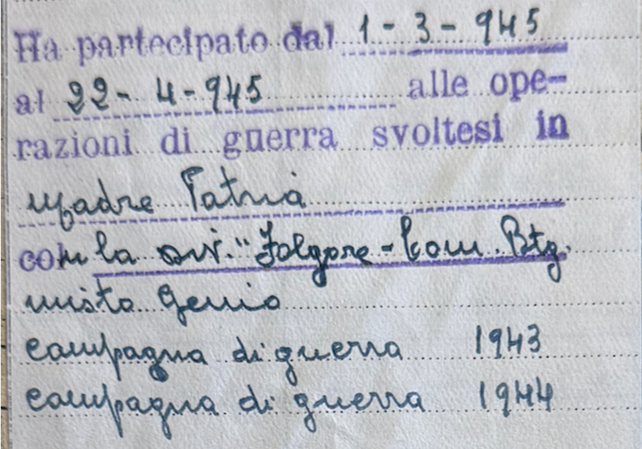 Ha partecipato dal 1-3-945
al 22-4-945 alle ope-
razioni di guerra svoltesi in
Madre Patria
con la Div. "Folgore - Com. Btg.
misto Genio
campagna di guerra 1943
campagna di guerra 1944